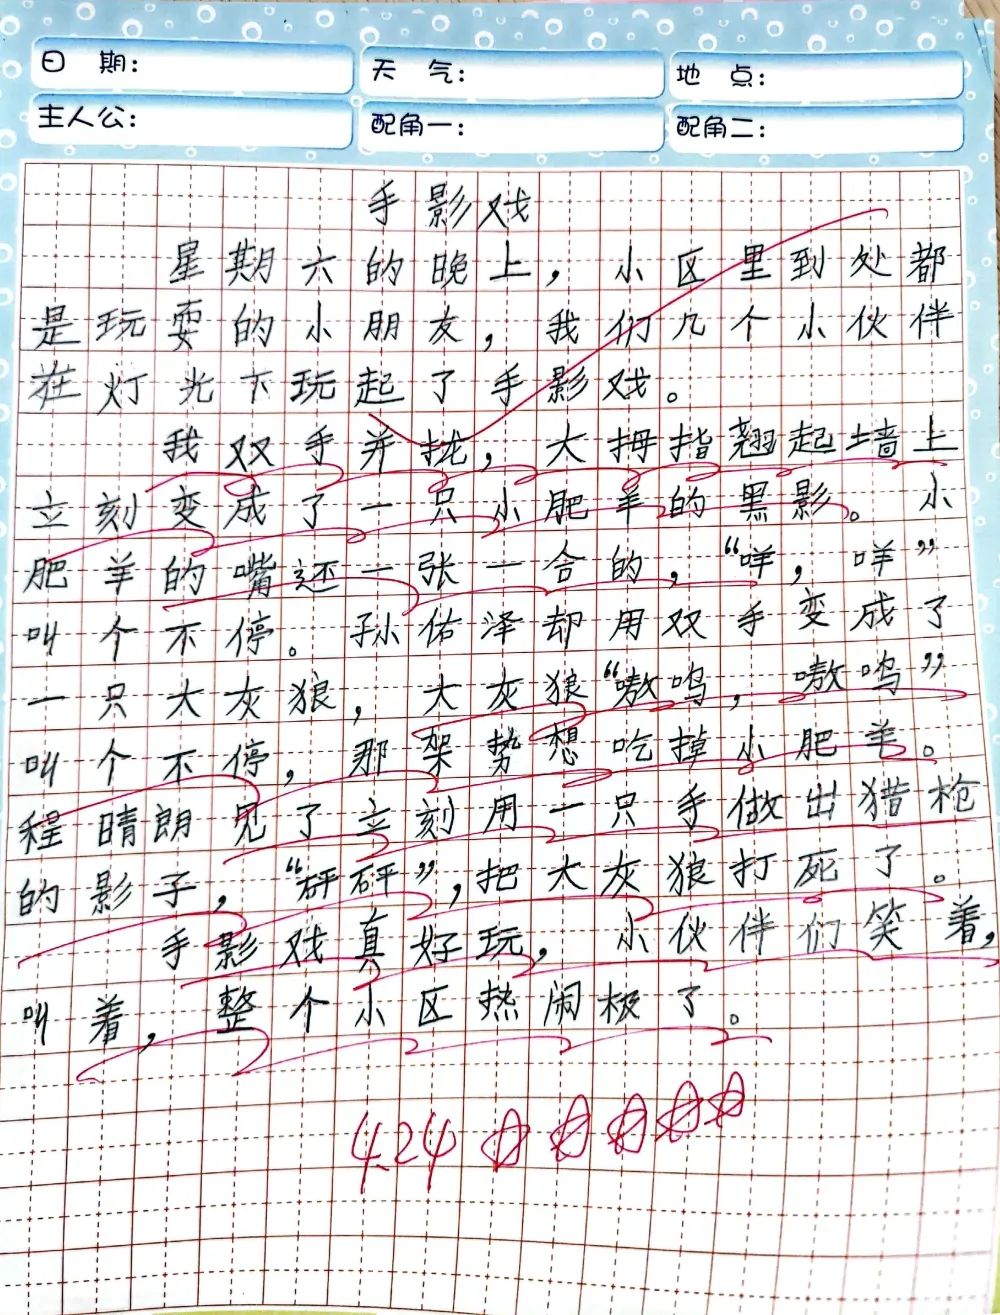 日 期: 天 气: 地 点:
主人公: 配角一: 配角二:
手影戏
星期六的晚上，小区里到处都
是玩耍的小朋友，我们几个小伙伴
在灯光下玩起了手影戏。
我双手并拢，大拇指翘起墙上
立刻变成了一只小肥羊的黑影。小
肥羊的嘴还一张一合的，“咩，咩”
叫个不停。孙佑泽却用双手变成了
一只大灰狼，大灰狼“嗷呜，嗷呜”
叫个不停，那架势想吃掉小肥羊。
程晴朗见了立刻用一只手做出猎枪
的影子，“砰砰”，把大灰狼打死了。
手影戏真好玩，小伙伴们笑着，
叫着，整个小区热闹极了。
4.24 ☆☆☆☆☆